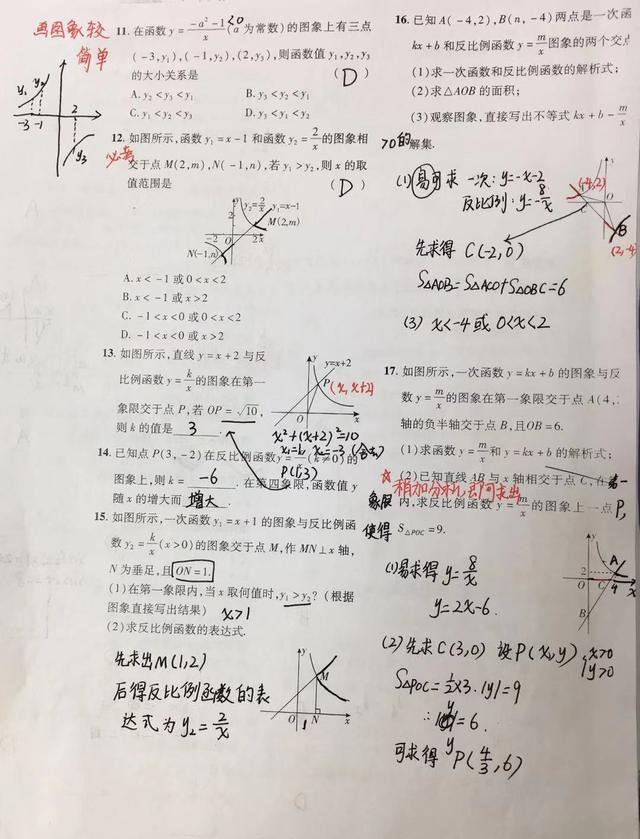 画图象较
简单
11. 在函数 y = (-a²-1)/x (a为常数)的图象上有三点
<0
(-3,y₁),(-1,y₂),(2,y₃),则函数值 y₁,y₂,y₃
的大小关系是 ( D )
A. y₂<y₃<y₁ B. y₃<y₂<y₁
C. y₁<y₂<y₃ D. y₃<y₁<y₂
y₁ y₂
2
-3 -1
y₃
12. 如图所示,函数 y₁=x-1 和函数 y₂=2/x 的图象相
必考
交于点 M(2,m),N(-1,n),若 y₁>y₂,则 x 的取
值范围是 ( D )
y y₂=2/x y₁=x-1
2
M(2,m)
-2 O 2 x
N(-1,n)
A. x<-1 或 0<x<2
B. x<-1 或 x>2
C. -1<x<0 或 0<x<2
D. -1<x<0 或 x>2
13. 如图所示,直线 y=x+2 与反
比例函数 y=k/x 的图象在第一
象限交于点 P,若 OP=√10,
则 k 的值是 3 .
y y=x+2
P (x,x+2)
O x
x²+(x+2)²=10
x₁=1, x₂=-3(舍去)
P(1,3)
14. 已知点 P(3,-2)在反比例函数 y=k/x(k≠0)的
图象上,则 k= -6 . 在第四象限,函数值 y
随 x 的增大而 增大 .
15. 如图所示,一次函数 y₁=x+1 的图象与反比例函
数 y₂=k/x(x>0)的图象交于点 M,作 MN⊥x 轴,
N 为垂足,且 ON=1.
(1)在第一象限内,当 x 取何值时,y₁>y₂?(根据
图象直接写出结果) x>1
(2)求反比例函数的表达式.
先求出M(1,2)
后得反比例函数的表
达式为 y₂=2/x
y
M
O 1 N x
16. 已知 A(-4,2),B(n,-4)两点是一次函
kx+b 和反比例函数 y=m/x 图象的两个交点
(1)求一次函数和反比例函数的解析式;
(2)求△AOB 的面积;
(3)观察图象,直接写出不等式 kx+b-m/x
>0的解集.
(1) 易可求 一次: y=-x-2
反比例: y=-8/x
(-4,2)
O
C
B
(2,-4)
先求得 C(-2,0)
S△AOB=S△ACO+S△OBC=6
(3) x<-4 或 0<x<2
17. 如图所示,一次函数 y=kx+b 的图象与反
数 y=m/x 的图象在第一象限交于点 A(4,
轴的负半轴交于点 B,且 OB=6.
(1)求函数 y=m/x 和 y=kx+b 的解析式;
(2)已知直线 AB 与 x 轴相交于点 C,在第一
象限内,求反比例函数 y=m/x 的图象上一点P,
使得 S△POC=9.
(1)易求得 y=8/x
y=2x-6.
y
A
2
O C 4 x
B
(2) 先求C(3,0) 设P(x,y), x>0
y>0
S△POC=1/2×3·|y|=9
∴ y=6.
可求得 P(4/3,6)